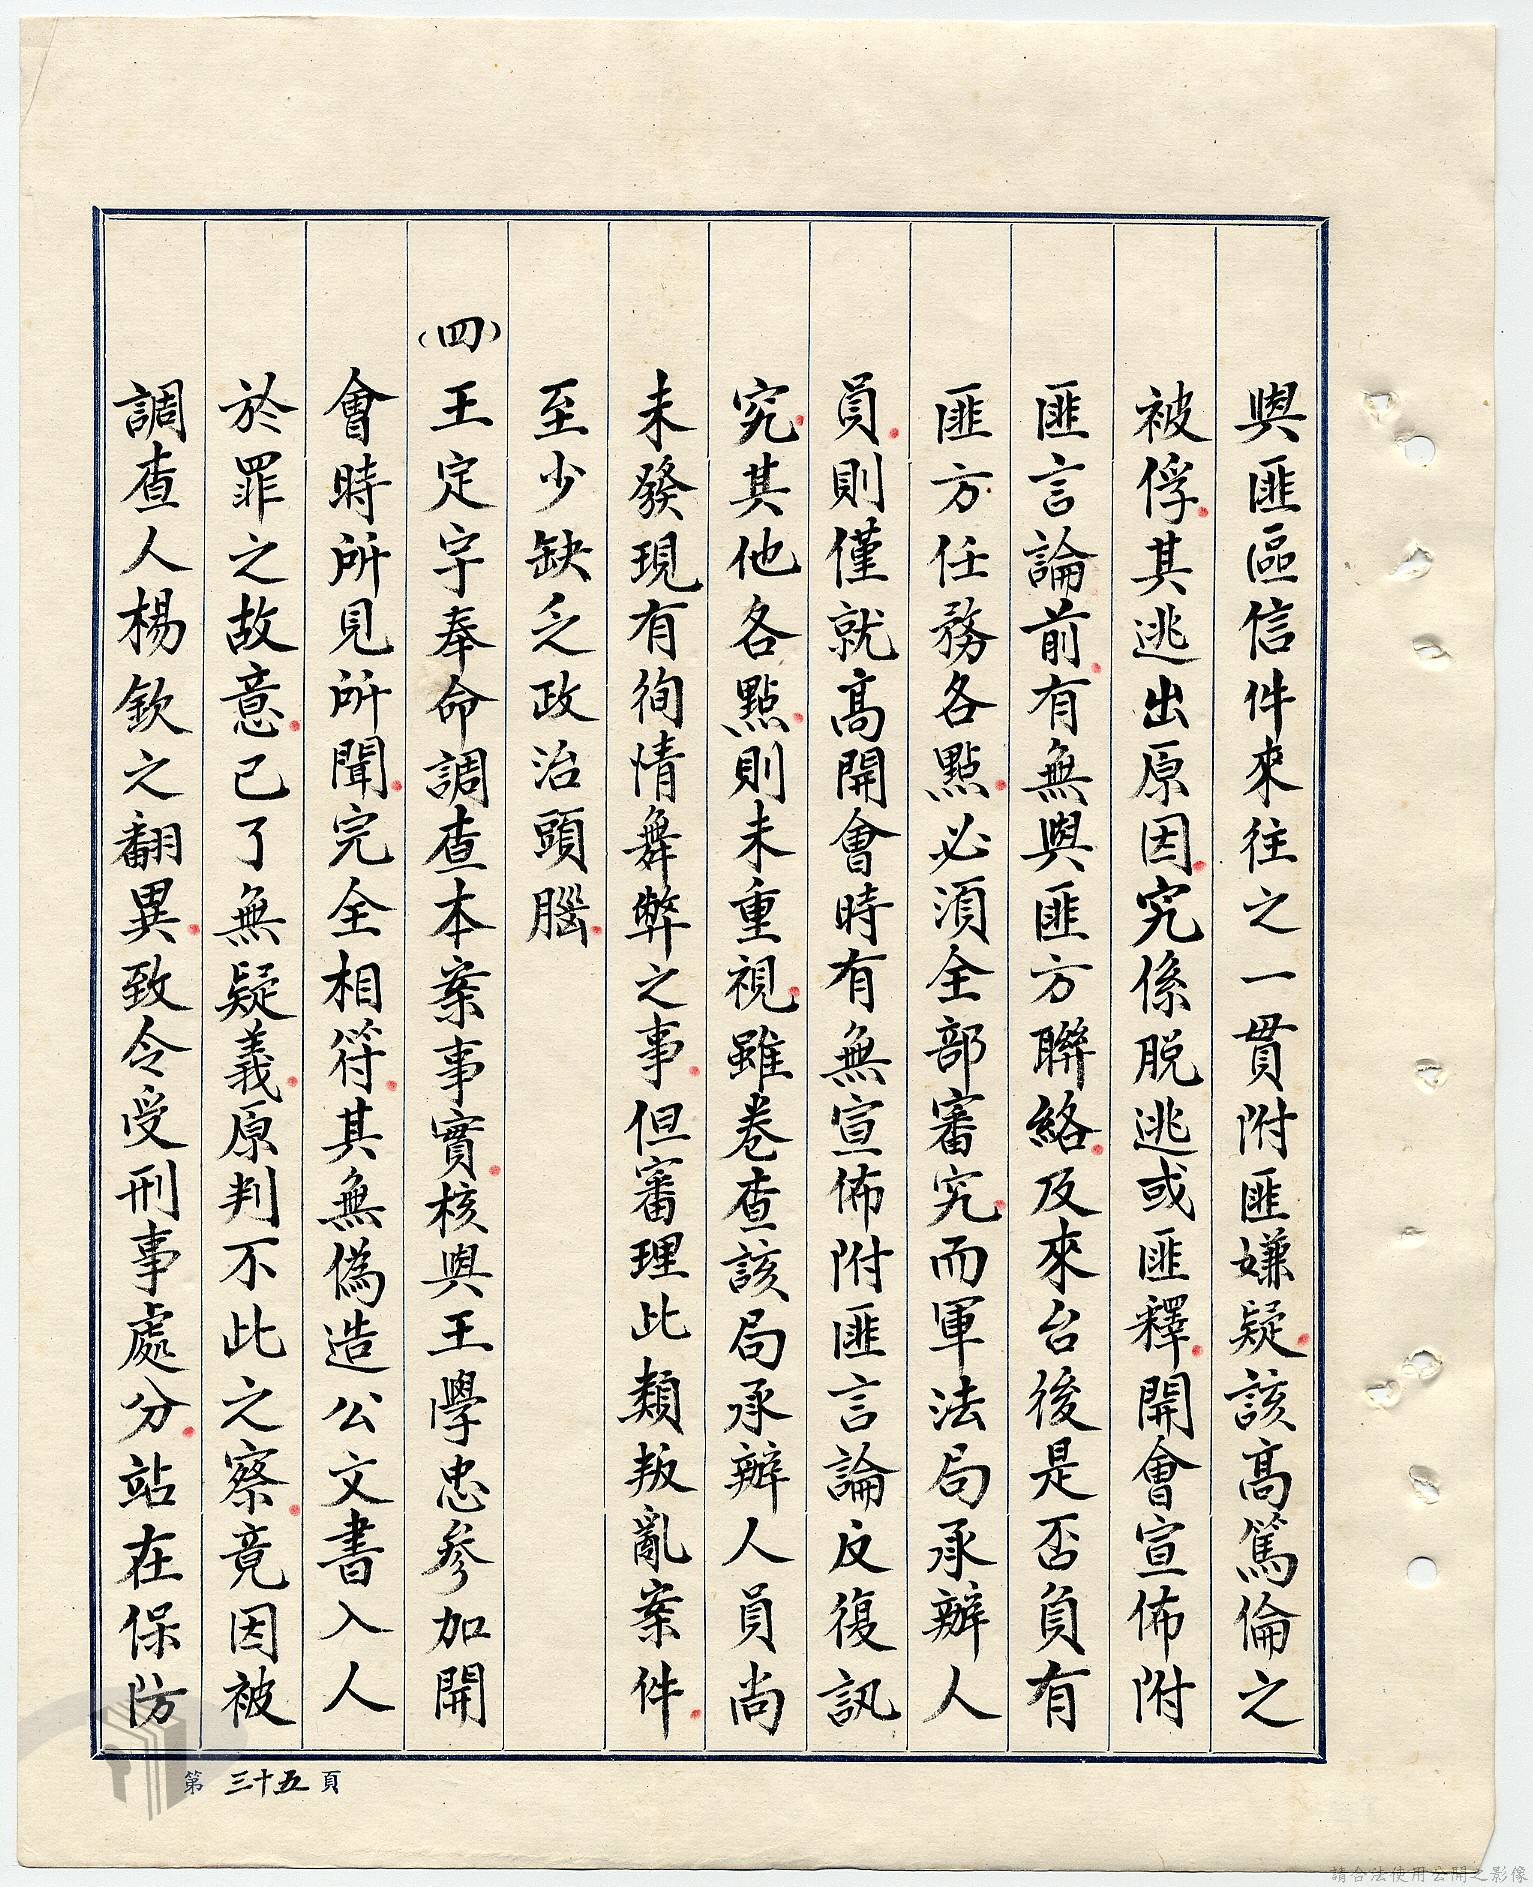 與匪區信件來往之一貫附匪嫌疑該高篤倫之
被俘其逃出原因究係脫逃或匪釋開會宣佈附
匪言論前有無與匪方聯絡及來台後是否負有
匪方任務各點必須全部審究而軍法局承辦人
員則僅就高開會時有無宣佈附匪言論反復訊
究其他各點則未重視雖卷查該局承辦人員尚
未發現有徇情舞弊之事但審理此類叛亂案件
至少缺乏政治頭腦
(四)王定宇奉命調查本案事實核與王學忠參加開
會時所見所聞完全相符其無偽造公文書入人
於罪之故意已了無疑義原判不此之察竟因被
調查人楊欽之翻異致令受刑事處分站在保防
第三十五頁
請合法使用公開之影像